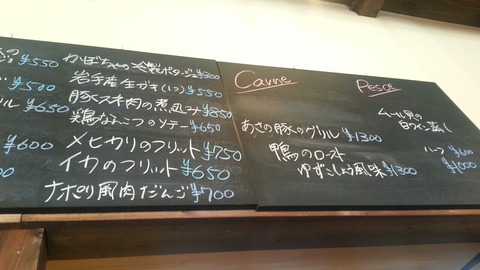 ¥550
¥500
¥650
¥600
かぼちゃの冷製ポタージュ ¥300
岩手産生ガキ(1コ) ¥550
豚スネ肉の煮込み ¥850
鶏なんこつのソテー ¥650
メヒカリのフリット ¥750
イカのフリット ¥650
ナポリ風肉だんご ¥700
Carne
あさの豚のグリル ¥1300
鴨のロースト
ゆずこしょう風味 ¥1300
Pesce
ムール貝の
白ワイン蒸し
ハーフ ¥600
¥1000